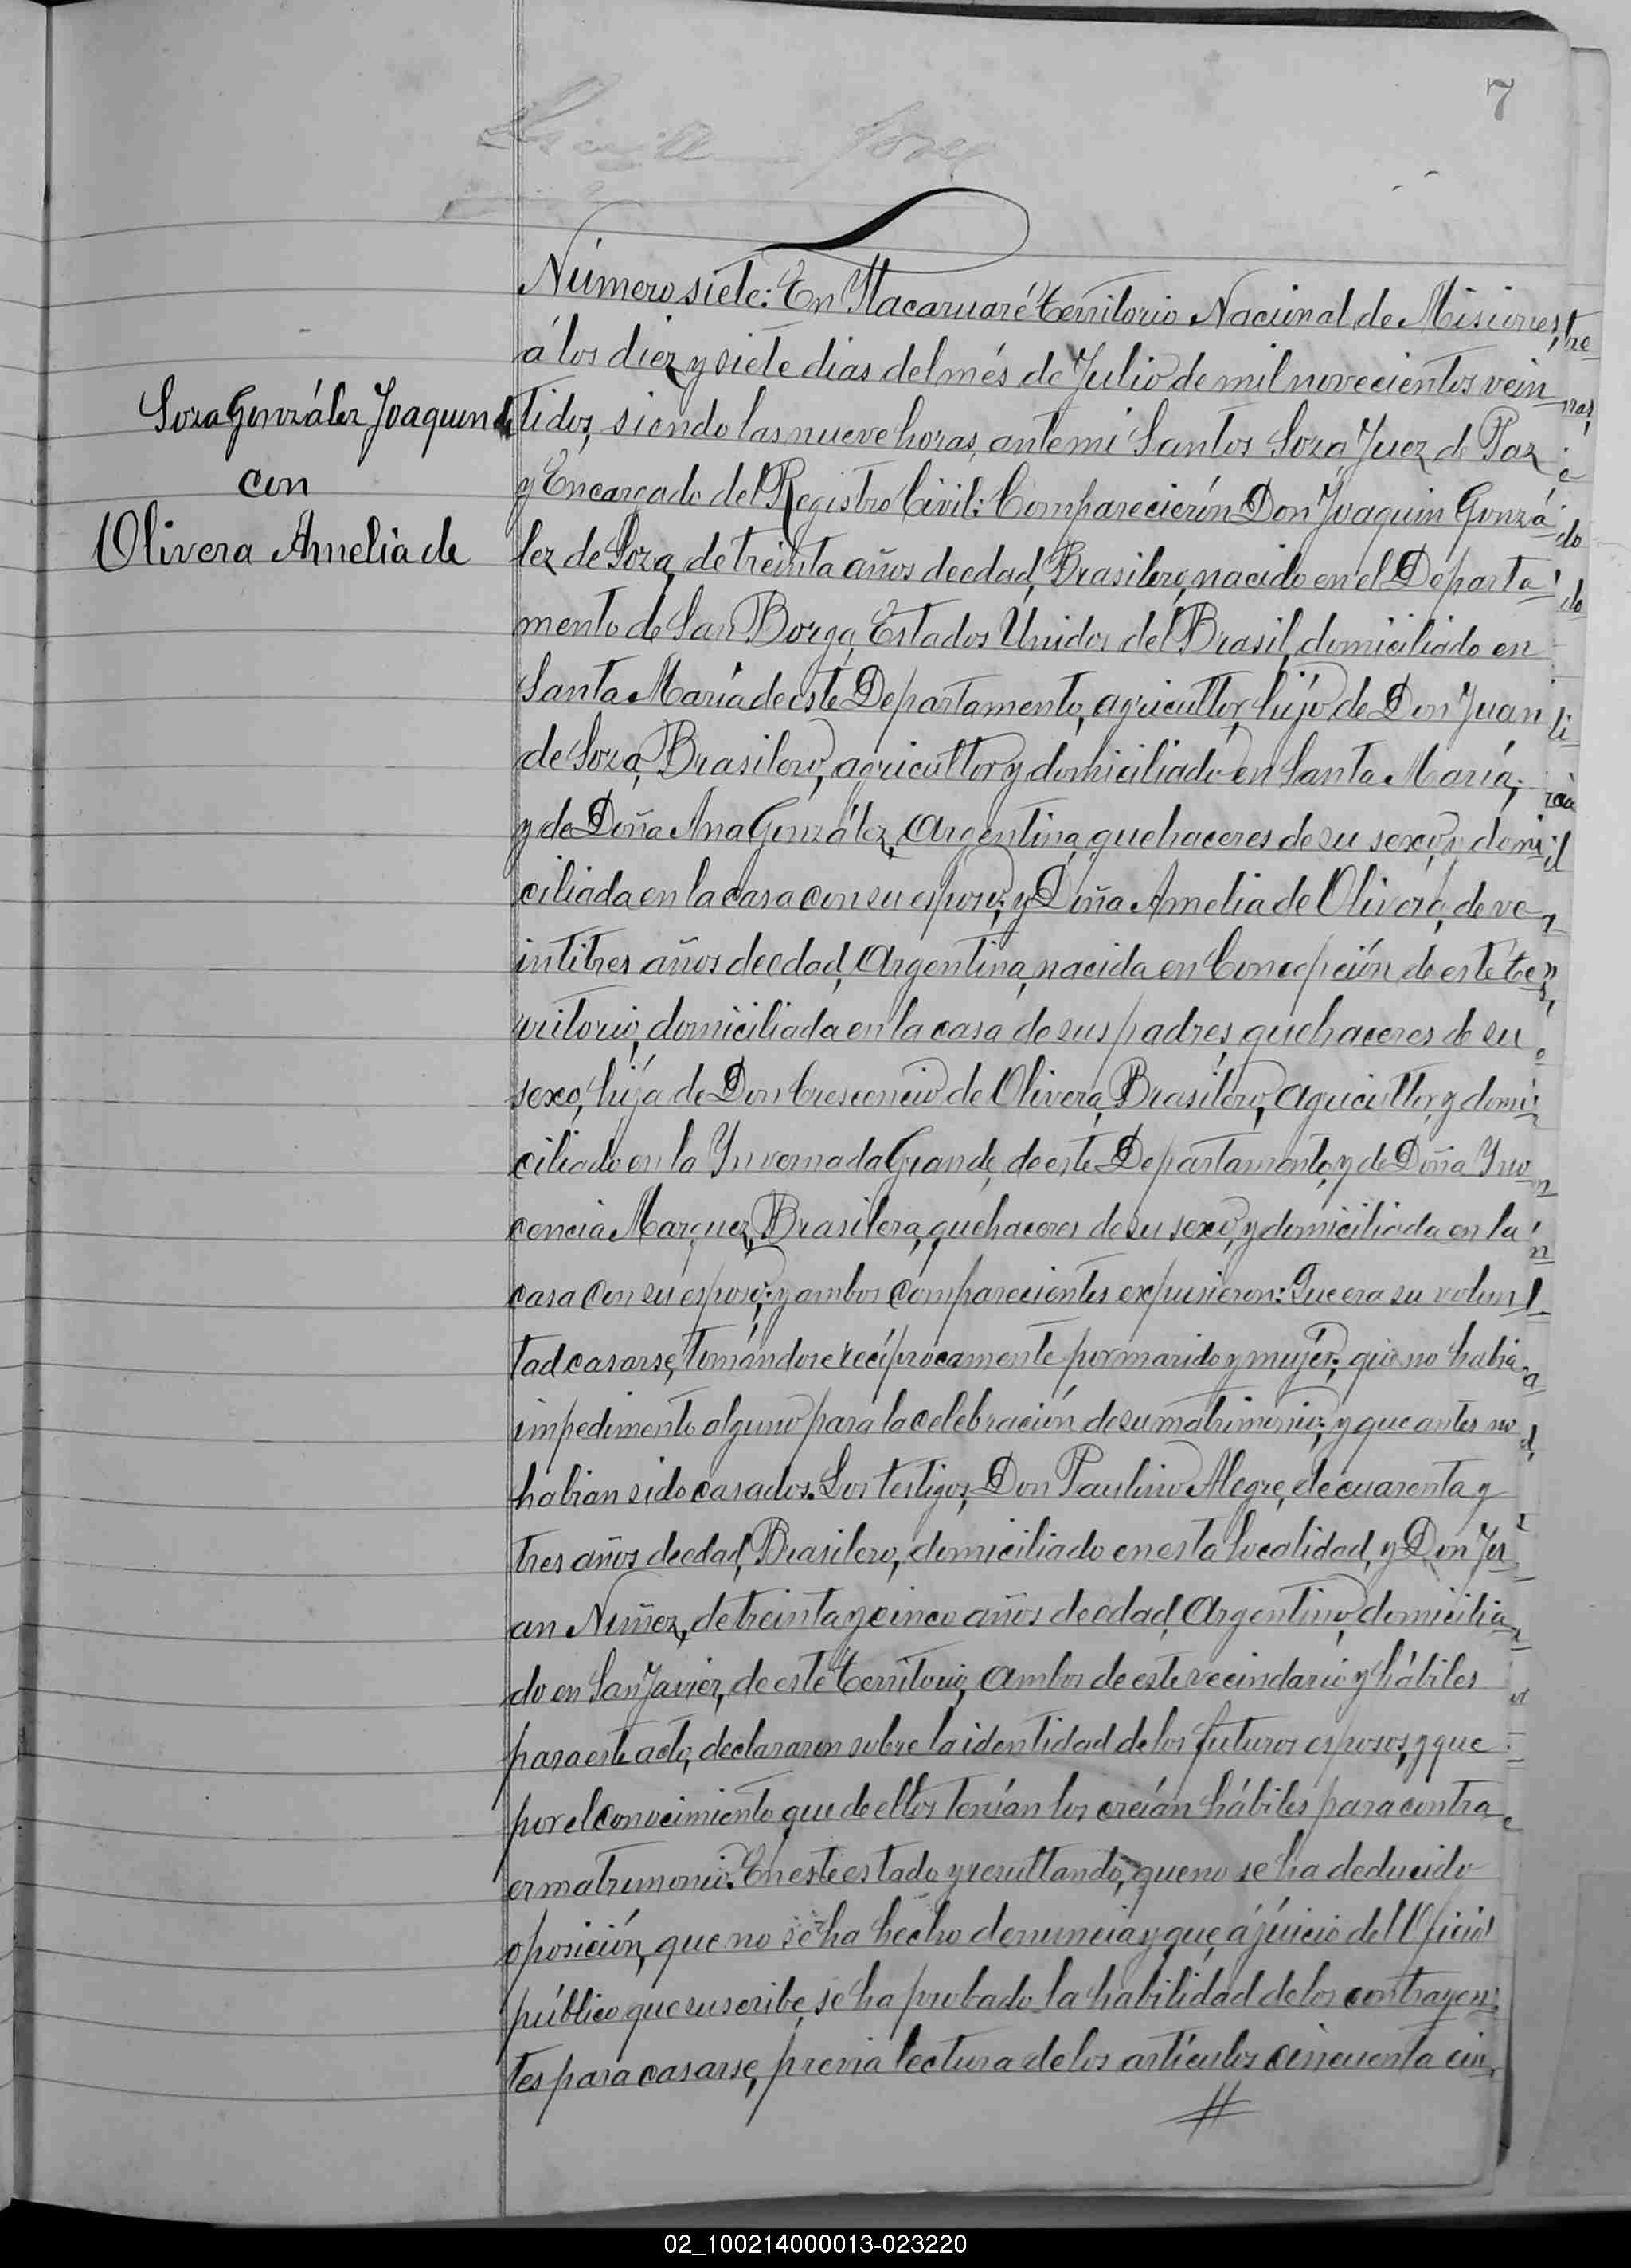 7
Número siete: En Itacaruaré territorio Nacional de Misiones,
á los diez y siete dias del més de Julio de mil novecientos vein
Soza González Joaquin de
con
Olivera Amelia de
tidos, siendo las nueve horas, ante mi Santos Soza Juez de Paz
y Encargado del Registro Civil: Comparecierón Don Joaquin Gonzá
lez de Soza, de treinta años de edad, Brasilero, nacido en el Departa
mento de San Borga, Estados Unidos del Brasil, domiciliado en
Santa María de este Departamento, agricultor, hijo de Don Juan
de Soza, Brasilero, agricultor y domiciliado en Santa María;
y de Doña Ana González, Argentina, quehaceres de su sexo, y domi
ciliada en la casa con su esposo; y Doña Amelia de Olivera, de ve
intitres años de edad, Argentina, nacida en Concepción de este te
rritorio, domiciliada en la casa de sus padres, quehaceres de su
sexo, hija de Don Crescencio de Olivera, Brasilero, agricultor, y domi
ciliado en la Invernada Grande, de este Departamento, y de Doña Ino
cencia Marquez, Brasilera, quehaceres de su sexo, y domiciliada en la
casa con su esposo; y ambos comparecientes expusieron: Que era su volun
tad casarse, tomándose recíprocamente por marido y mujer; que no habia
impedimento alguno para la celebración de su matrimonio; y que antes no
habian sido casados. Los testigos, Don Paulino Alegre, de cuarenta y
tres años de edad, Brasilero, domiciliado en esta localidad, y Don Ju
an Nuñez, de treinta y cinco años de edad, Argentino, domicilia
do en San Javier, de este territorio, ambos de este vecindario y hábiles
para este acto, declararon sobre la identidad de los futuros esposos, y que
por el conocimiento que de ellos tenían los creían hábiles para contra
er matrimonio. En este estado y resultando, que no se ha deducido
oposición, que no se ha hecho denuncia y que, á juicio del Oficial
público que suscribe, se ha probado la habilidad de los contrayen
tes para casarse, previa lectura de los artículos cincuenta cin
02_100214000013-023220